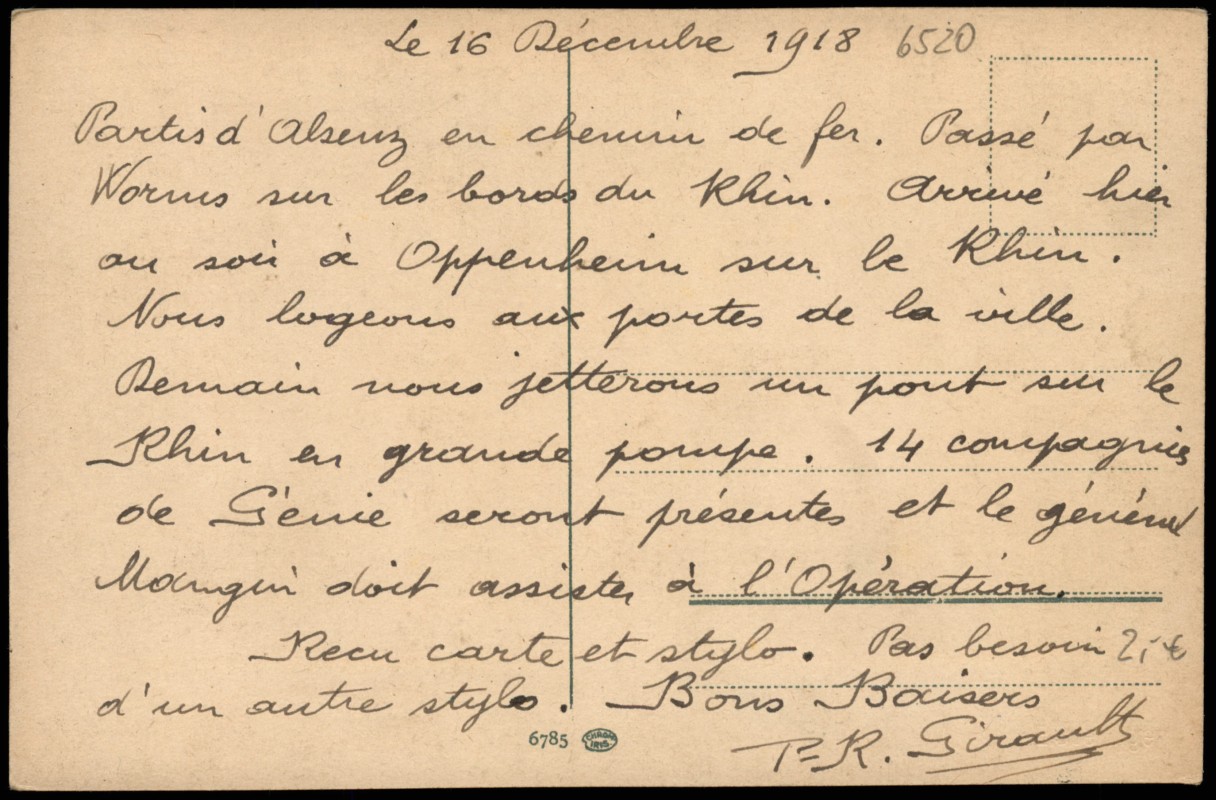 Le 16 Décembre 1918 6520
Partis d'Alsenz en chemin de fer. Passé par
Worms sur les bords du Rhin. Arrivé hier
au soir à Oppenheim sur le Rhin.
Nous logeons aux portes de la ville.
Demain nous jetterons un pont sur le
Rhin en grande pompe. 14 compagnies
de Génie seront présentes et le général
Mangin doit assister à l'Opération.
Recu carte et stylo. Pas besoin 2,- €
d'un autre stylo. Bons Baisers
6785 CHROM IRIS
P-R. Girault